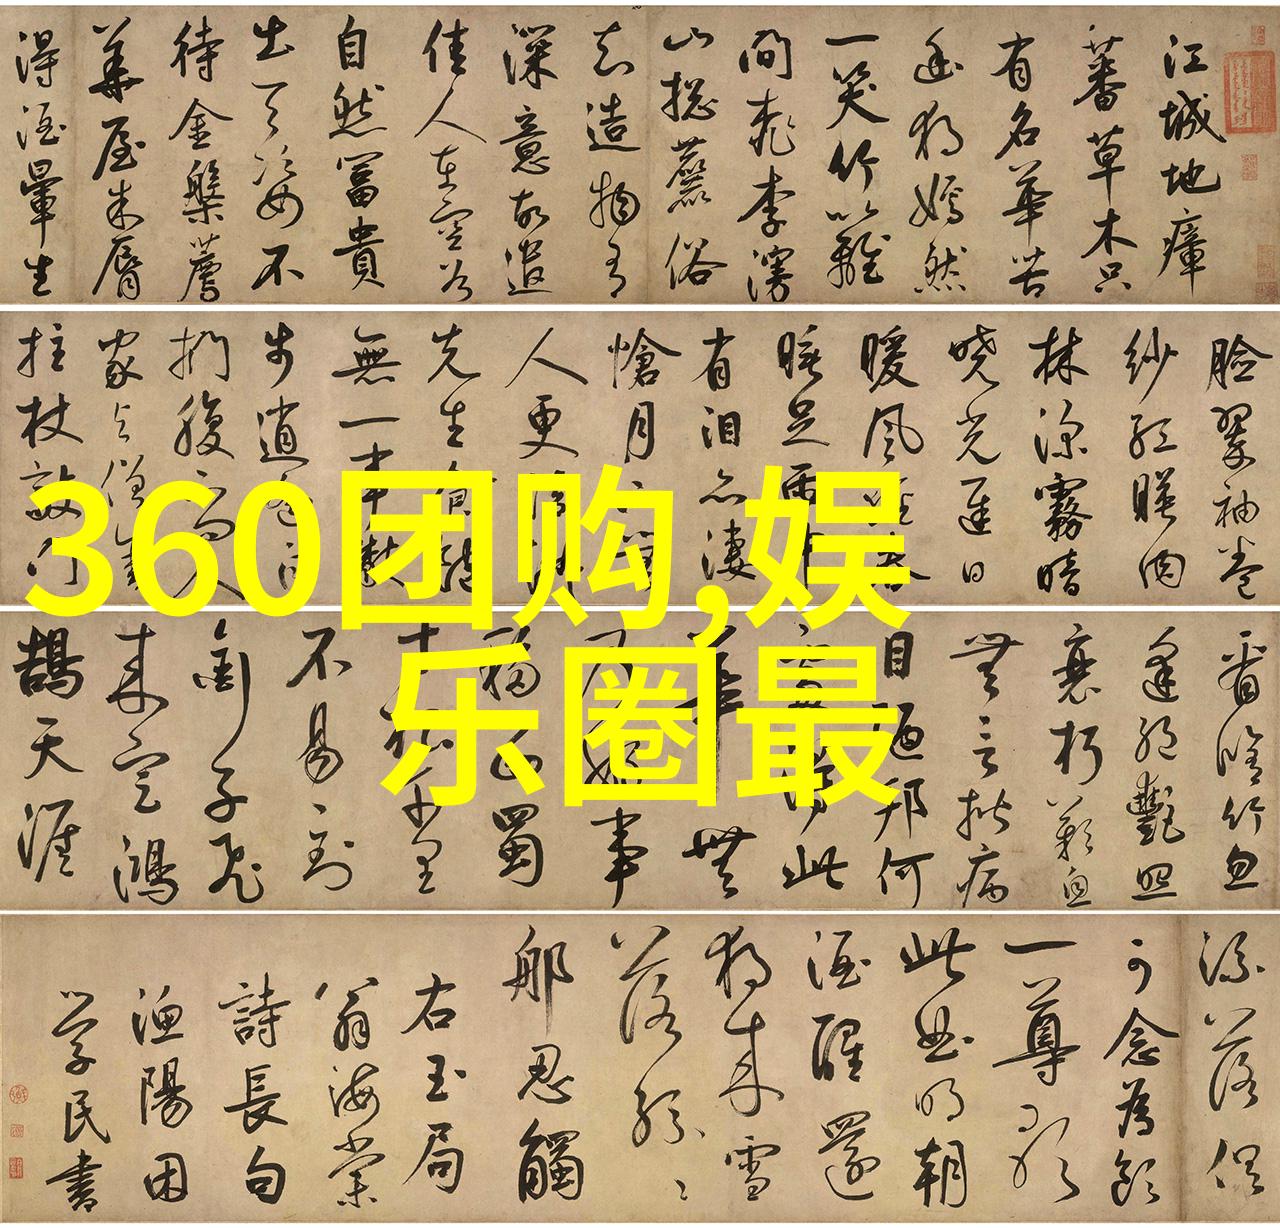 江城地瘴
蕃草木只
有名華苦
幽獨嫣然
一笑竹籬
間桃李漫
山揔麤俗
知造物有
深意故遣
佳人在空谷
自然冨貴
出天姿不
待金盤薦
華屋朱脣
得酒暈生
臉翠袖卷
紗紅暎肉
林深霧暗
曉光遲日
暖風春
睡足雨中
有泪亦凄
愴月下
人更清
先生食飽
無一事散
步逍
捫腹不問人
家與僧舍
拄杖敲門
看脩竹忽
逢絶艷照
衰朽歎息
無言揩病
目陋邦何
處得此
華無
乃好事
移西蜀
寸根千里
不易到
銜子飛
来定鴻
鵠天涯
流落俱
可念為飲
一尊歌
此曲明朝
酒醒還
獨来雪
落紛々
那忍觸
右玉局
翁海棠
詩長句
漁陽困
学民書
360团购,娱
乐圈最